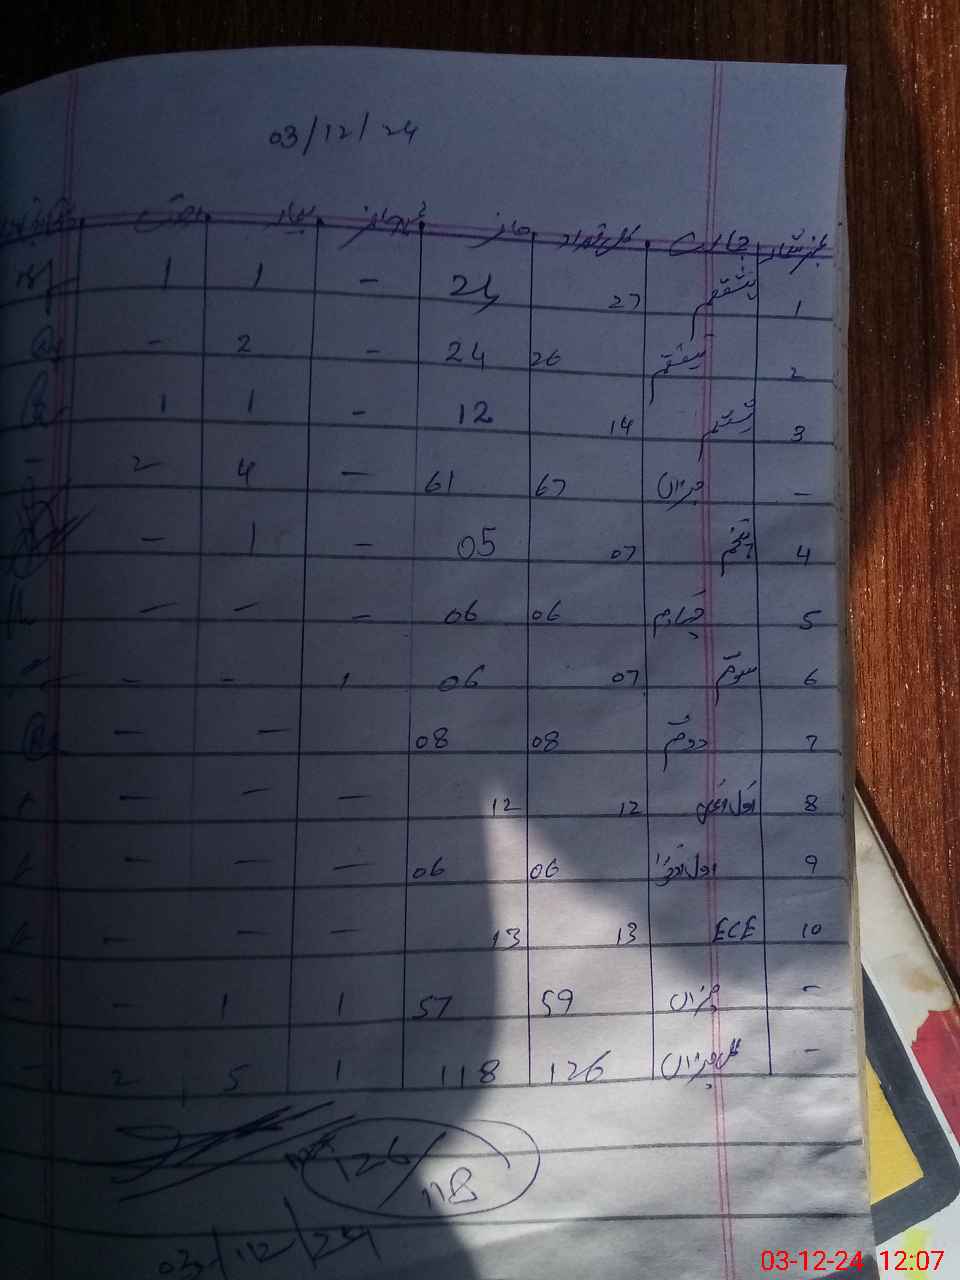 03/12/24
نمبر شمار جماعت کل تعداد حاضر غیر حاضر بیمار رخصت
1 ہشتم 27 1 1 -
2 ہفتم 26 24 - 2 -
3 ششم 14 12 - 1 1
- میزان 67 61 - 4 2 -
4 پنجم 07 05 - 1 -
5 چہارم 06 06 - - -
6 سوم 07 06 1 - -
7 دوم 08 08 - -
8 اول اعلیٰ 12 12 - - -
9 اول ادنیٰ 06 06 - - -
10 ECE 13 13 - - -
- میزان 59 57 1 1 - -
- کل میزان 126 118 1 5 2 -
126/118
03/12/24
03-12-24 12:07